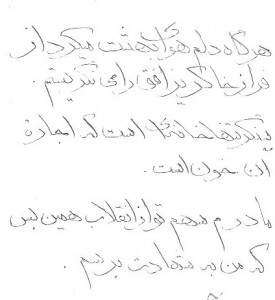 هرگاه دلم هوای بهشت میکرد از
فراز خاکریز افق را می نگریستم.
سنگر تنها خانه ای است که اجاره
آن خون است.
مادرم سهم تو از انقلاب همین بس
که من به شهادت برسم.